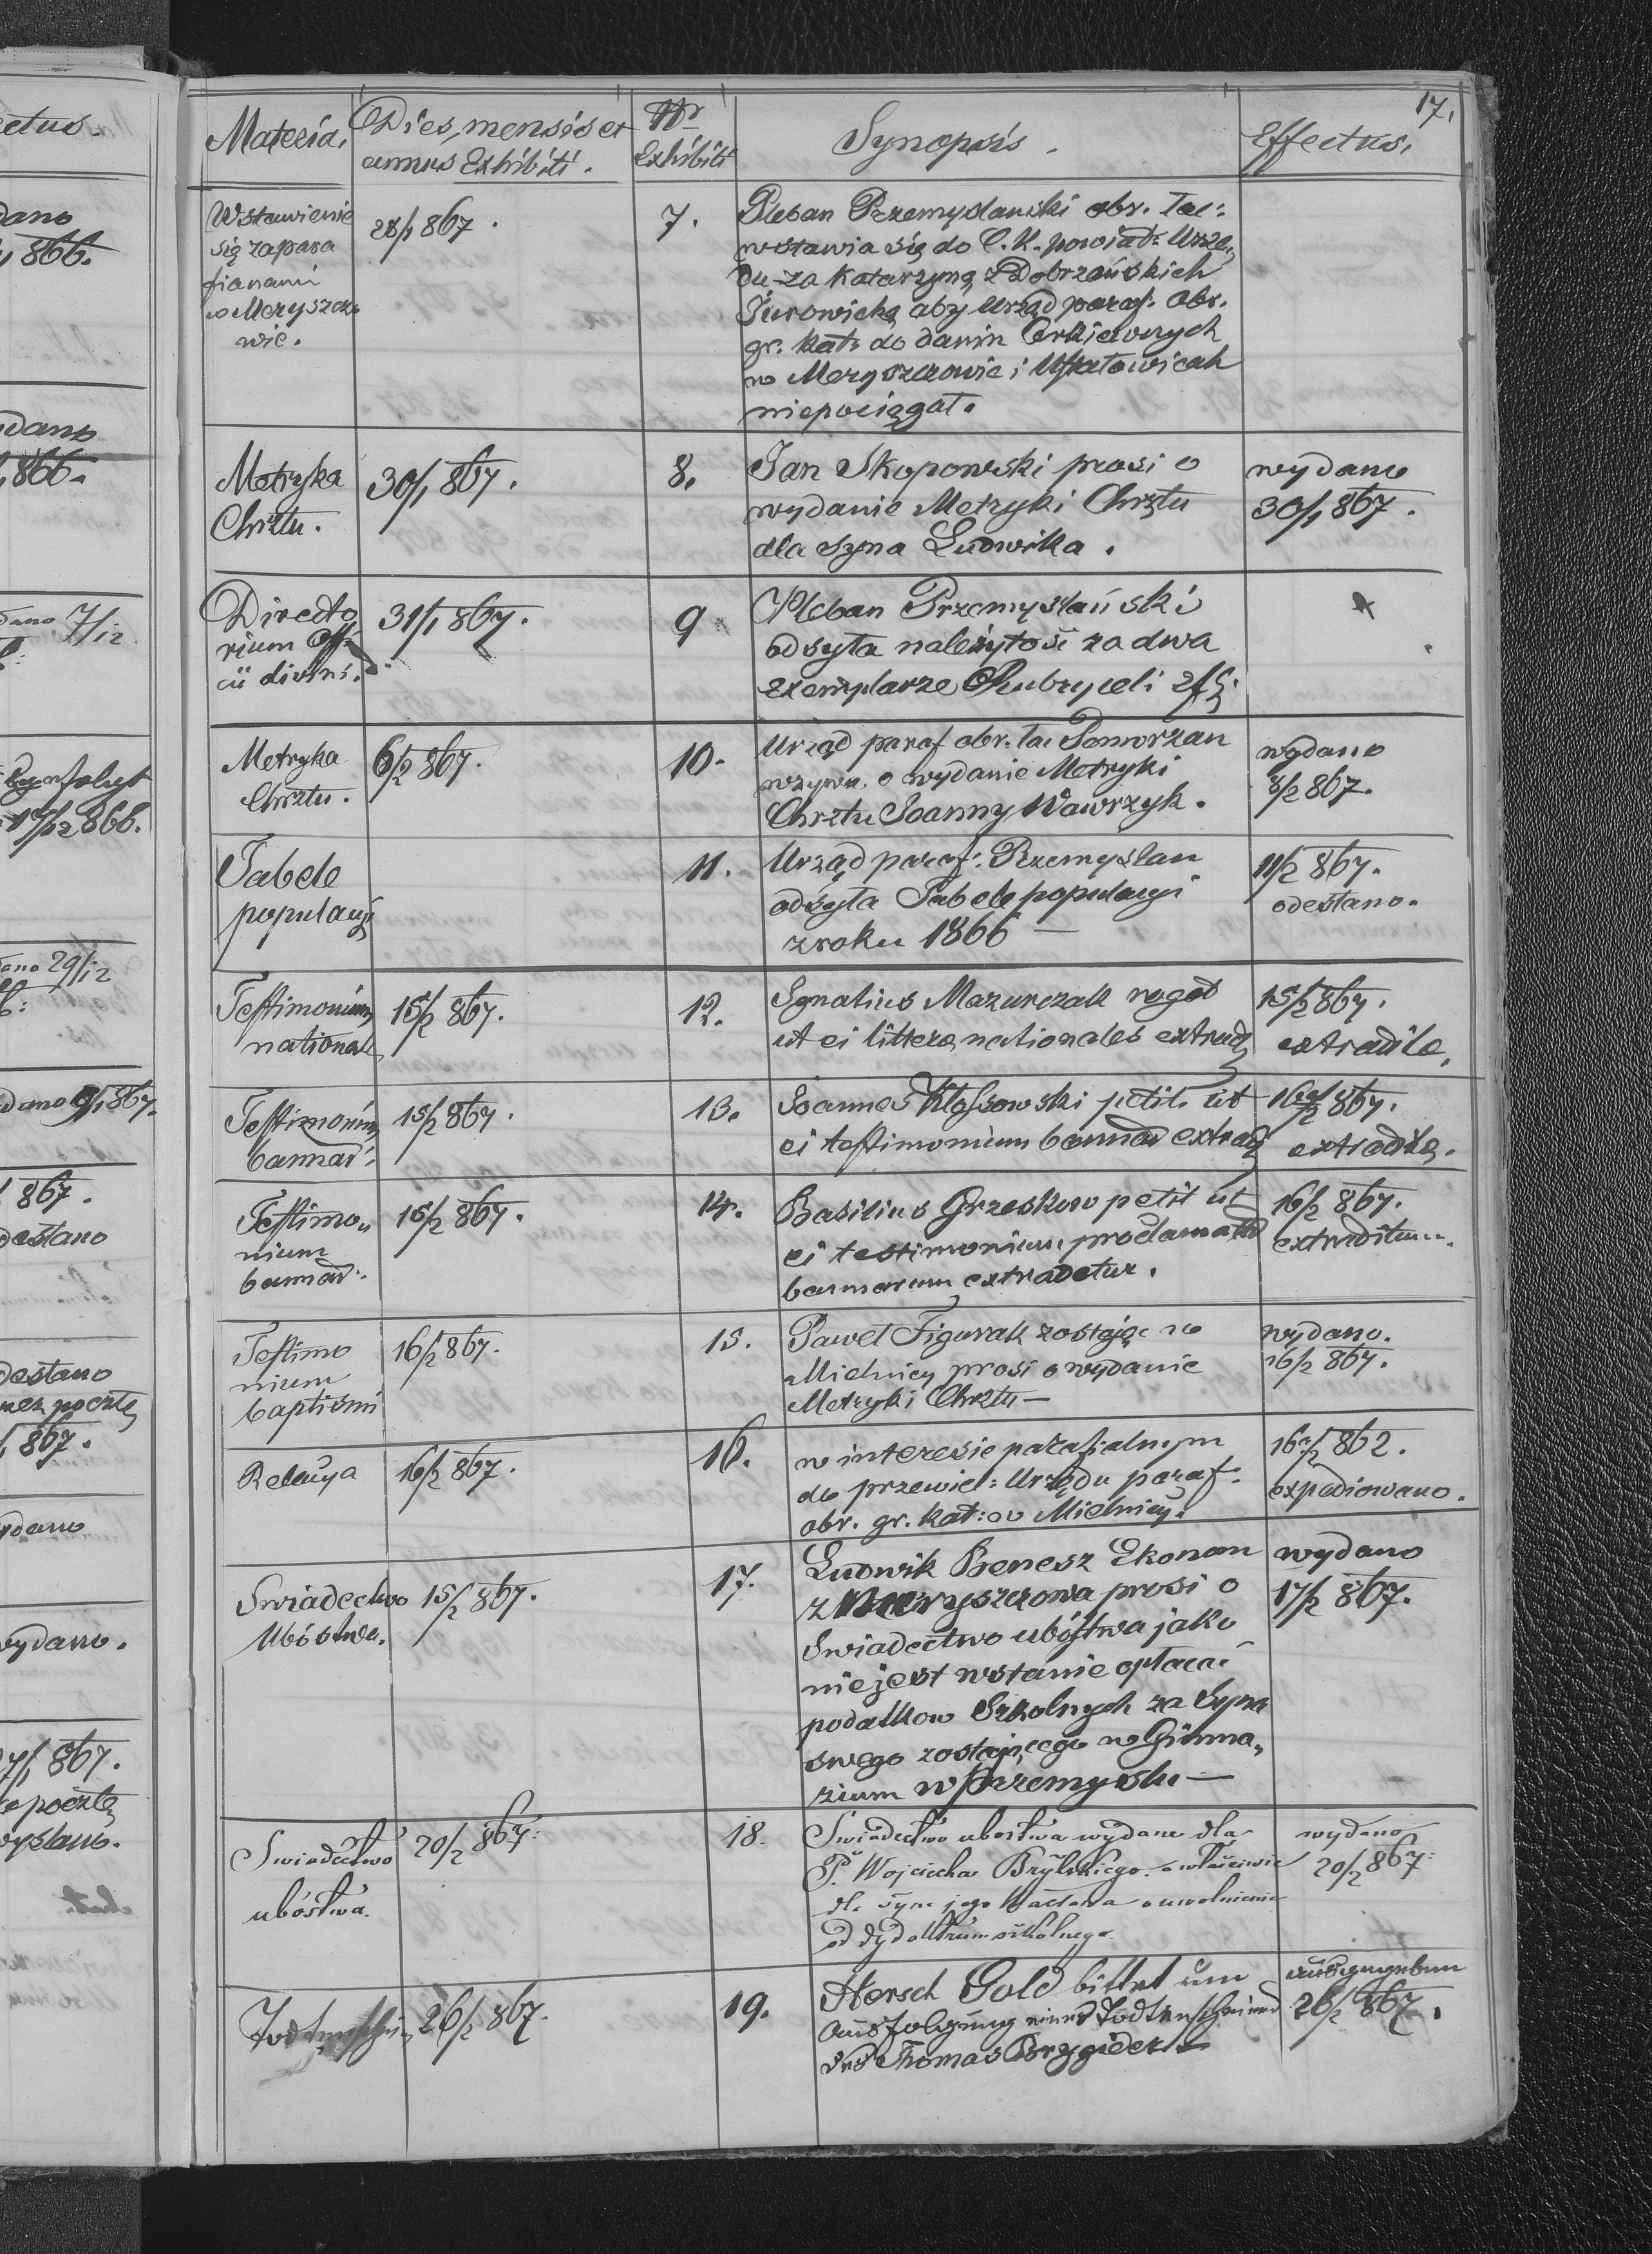 17.
Materia.
Dies, mensis et
annus Exhibiti.
Nr
Exhibiti
Synopsis.
Effectus.
Wstawienie
się za para
fianami
w Meryszczo
wie.
28/1 867.
7.
Pleban Przemyslanski obr. łac:
wstawia się do C. K. powiat: Urzę
du za Katarzyną z Dobrzańskich
Jurowicką aby Urząd paraf: obr.
gr. kat: do danin Cerkiewnych
w Meryszczowie i
niepociągał.
Metryka
Chrztu.
30/1 867.
8.
Jan Skoponski prosi o
wydanie Metryki Chrztu
dla Syna Ludwika.
wydano
30/1 867.
Directo
rium Offi
cii divini.
31/1 867.
9
Pleban Przemyslański
odsyła należytość za dwa
exemplarze Rubryceli
Metryka
Chrztu.
6/2 867.
10.
Urząd paraf obr. łac Pomorzan
wzywa o wydanie Metryki
Chrztu Joanny Wawrzyk.
wydano
8/2 867.
Tabele
populacyi
11.
Urząd paraf: Przemyslan
odsyła Tabele populacyi
z roku 1866 —
11/2 867.
odesłano.
Testimonium
nationale
15/2 867.
12.
Ignatius Mazurczak rogat
ut ei litterae nationales extrad
15/2 867.
extraditae.
Testimonium
bannor:
15/2 867.
13.
Joannes Klossowski petit ut
ei testimonium bannor extrad
16/2 867.
Testimo„
nium
bannor:
15/2 867.
14.
Basilius Grzeskow petit ut
ei testimonium proclamator
bannorum extradetur.
16/2 867.
extraditum.
Testimo
nium
baptismi
16/2 867.
15.
Paweł Figurak zostając w
Mielnicy prosi o wydanie
Metryki Chrztu —
wydano.
16/2 867.
16/2 867.
16.
w interesie parafialnym
do przewiel: Urzędu paraf.
obr. gr. kat: w Mielnicy.
16/2 862.
expediowano.
Swiadectwo
Ubóstwa.
15/2 867.
17.
Ludwik Benesz Ekonom
z Meryszczowa prosi o
Swiadectwo ubóstwa jako
nie jest wstanie opłacać
podatkow Szkolnych za Syna
swego zostającego w Gimna„
zium w Przemyslu —
wydano
17/2 867.
Swiadectwo
ubóstwa.
20/2 867:
18.
Swiadectwo ubostwa wydane dla
P. Wojciecha Brylskiego a właściwie
dla syna jego Wacława o uwolnienie
od dydaktrum szkolnego.
wydano
20/2 867:
Todtenschein
26/2 867.
19.
Hersch Gold bittet um
Ausfolgung eines Todtenscheines
des Thomas Brygider
ausgegeben
26/2 867.